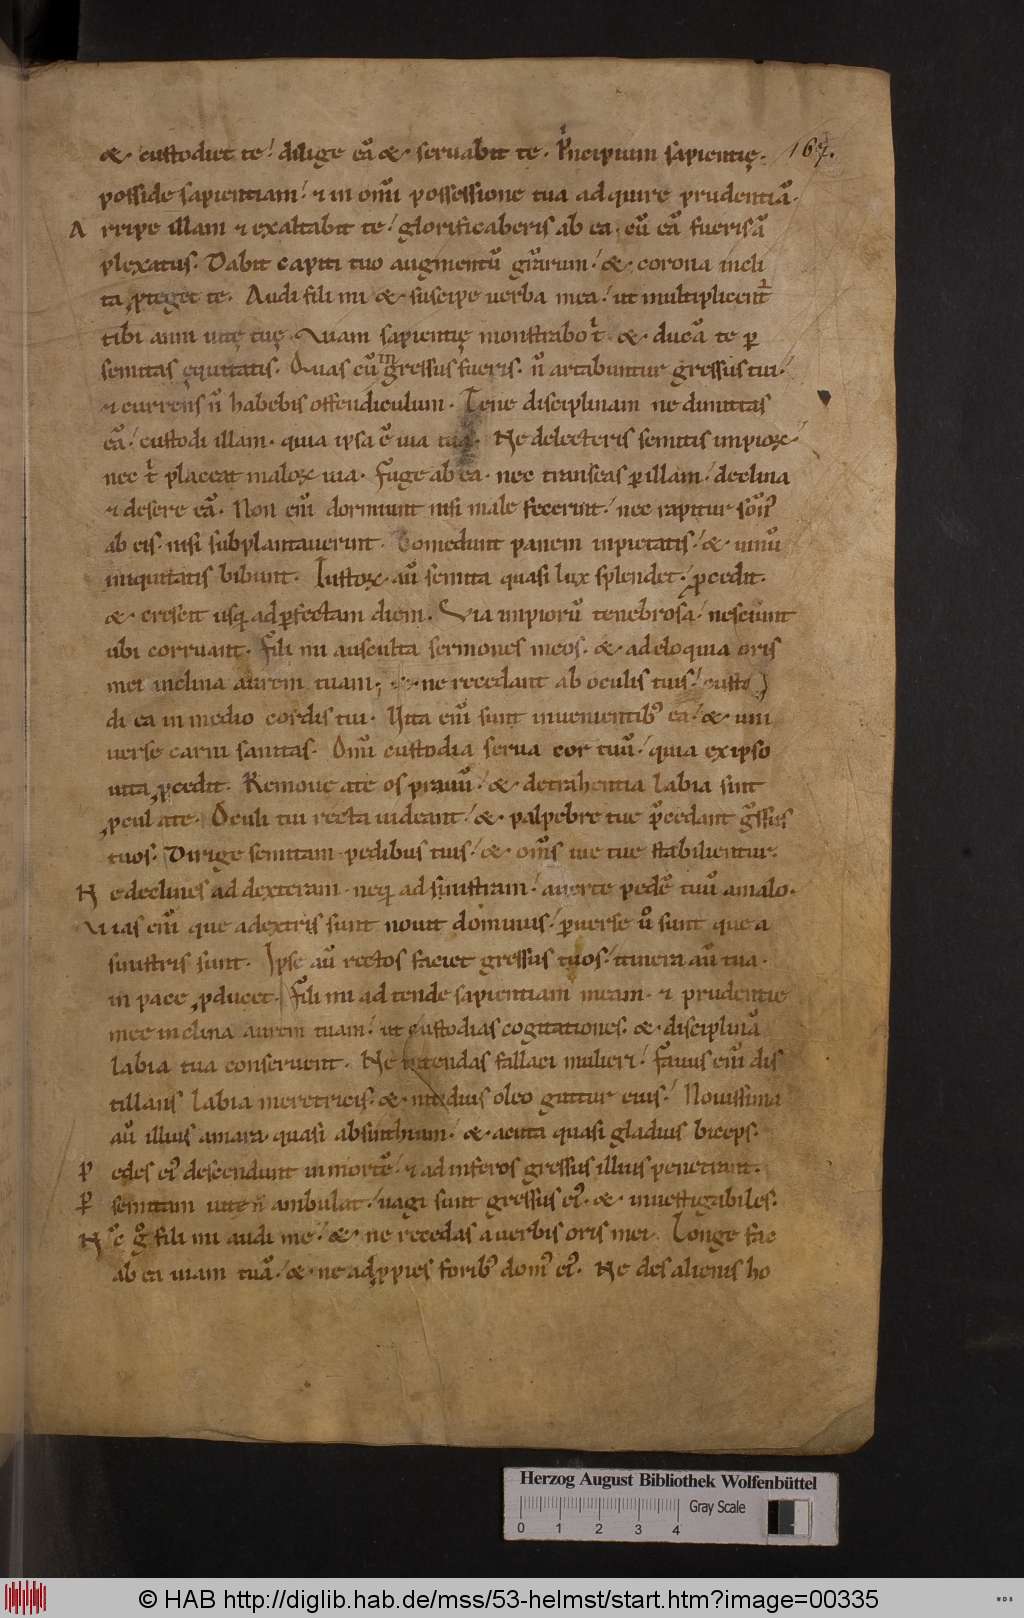 & custodiet te! dilige eā & seruabit te. P̍ncipium sapientię. 167.
posside sapientiam! & in om̄i possessione tua adquire prudentiā.
Arripe illam & exaltabit te! glorificaberis ab ea. cū eā fueris ā
plexatus. Dabit capiti tuo augmentū gr̄arum! & corona incli
ta ꝓteget te. Audi fili mi & suscipe uerba mea! ut multiplicent̄
tibi anni uitę tuę. Viam sapientię monstrabo t̍. & ducā te ꝑ
semitas ęquitatis. Quas cū ingressus fueris. n̄ artabuntur gressus tui!
& currens n̄ habebis offendiculum. Tene disciplinam ne dimittas
eā! custodi illam. quia ipsa ē uia tua. Ne delecteris semitis impioꝝ!
nec t̍ placeat maloꝝ uia. Fuge ab ea. nec transeas ꝑ illam! declina
& desere eā. Non eni̅ dormiunt nisi male fecerint! nec rapitur som̄
ab eis. nisi subplantauerint. Comedunt panem inpietatis! & uinū
iniquitatis bibunt. Iustoꝝ au̅ semita quasi lux splendet! ꝓcedit.
& crescit usq; ad ꝑfectam diem. Via impiorū tenebrosa! nesciunt
ubi corruant. Fili mi ausculta sermones meos. & ad eloquia oris
mei inclina aurem tuam; & ne recedant ab oculis tuis! custo
di ea in medio cordis tui. Uita eni̅ sunt inuenientib; ea! & uni
uerse carni sanitas. Om̄i custodia serua cor tuū! quia ex ipso
uita ꝓcedit. Remoue a te os prauū! & detrahentia labia sint
ꝓcul a te. Oculi tui recta uideant! & palpebre tue p̄cedant g̍ssus
tuos. Dirige semitam pedibus tuis! & om̄s uie tue stabilientur.
Ne declines ad dexteram. neq; ad sinistram! auerte pedē tuū a malo.
Vias eni̅ que a dextris sunt nouit dominus! ꝑuerse ů sunt que a
sinistris sunt. Ipse au̅ rectos faciet gressus tuos! itinera au̅ tua.
in pace ꝓducet. Fili mi adtende sapientiam meam. & prudentie
mee inclina aurem tuam! ut custodias cogitationes. & disciplinā
labia tua conseruent. Ne intendas fallaci mulieri! Fauus eni̅ dis
tillans labia meretricis. & nitidius oleo guttur eius! Nouissima
au̅ illius amara quasi absinthium! & acuta quasi gladius biceps.
Pedes ei̍ descendunt in mortē! & ad inferos gressus illius penetrant.
Ꝑ semitam uite n̄ ambulat! uagi sunt gressus ei̍. & inuestigabiles.
Nc̄ g̊ fili mi audi me! & ne recedas a uerbis oris mei. Longe fac
ab ea uiam tuā! & ne adꝓpies forib; dom̍ ei̍. Ne des alienis ho
Herzog August Bibliothek Wolfenbüttel
Gray Scale
0 1 2 3 4
© HAB http://diglib.hab.de/mss/53-helmst/start.htm?image=00335